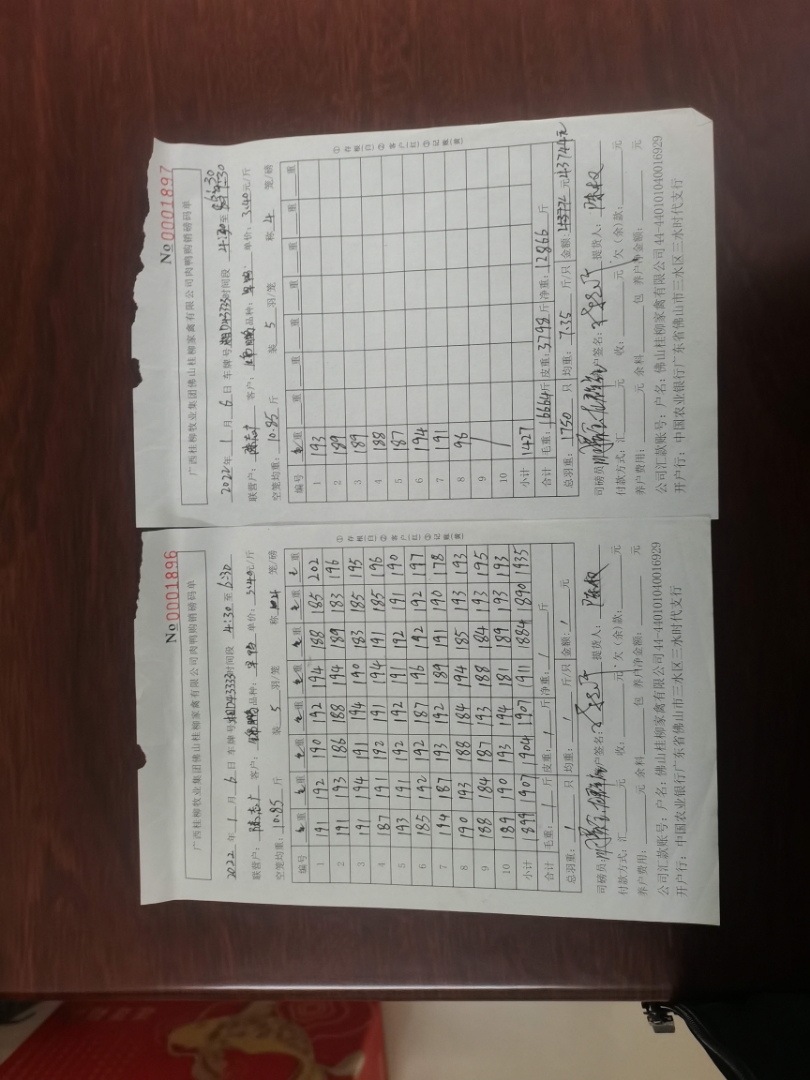 广西桂柳牧业集团佛山桂柳家禽有限公司肉鸭购销磅码单
No 0001896
2022 年 1 月 6 日 车牌号 湘D43333 时间段 4:30 至 6:30
联营户: 陈志广 客户: 品种: 单价: 3.40 元/斤
空笼均重: 10.85 斤 装 5 羽/笼 称 4 笼/磅
编号 毛重 毛重 毛重 毛重 毛重 毛重 毛重 毛重
1 191 192 190 192 194 188 185 202
2 191 193 186 188 194 189 183 196
3 191 194 191 194 190 183 185 195
4 187 191 192 191 194 191 185 196
5 193 191 192 192 191 192 191 190
6 185 192 192 187 196 192 192 197
7 194 187 193 192 189 191 190 178
8 190 193 188 184 194 185 193 193
9 188 184 187 193 188 184 193 195
10 189 190 193 194 181 189 193 193
小计 1899 1907 1904 1907 1911 1884 1890 1935
合计 毛重: / 斤 皮重: / 斤 净重: / 斤
总羽重: / 只 均重: / 斤/只 金额: / 元
①存根 白 ②客户 红 ③记账 黄
司磅员 户签名: 提货人: 陈权
付款方式: 汇 元 收: 元 欠(余)款: 元
养户费用: 元 余料 包 养户净金额: 元
公司汇款账号: 户名: 佛山桂柳家禽有限公司44-440101040016929
开户行: 中国农业银行广东省佛山市三水区三水时代支行
广西桂柳牧业集团佛山桂柳家禽有限公司肉鸭购销磅码单
No 0001897
2022 年 1 月 6 日 车牌号 湘D43333 时间段 4:30 至 6:30
联营户: 陈志广 客户: 品种: 单价: 3.40 元/斤
空笼均重: 10.85 斤 装 5 羽/笼 称 4 笼/磅
编号 毛重 重 重 重 重 重 重 重
1 193
2 189
3 189
4 188
5 187
6 194
7 191
8 96
9 /
10
小计 1427
合计 毛重: 16664 斤 皮重: 3798 斤 净重: 12866 斤
总羽重: 1750 只 均重: 7.35 斤/只 金额: 43744元
①存根 白 ②客户 红 ③记账 黄
司磅员 户签名: 提货人: 陈权
付款方式: 汇 元 收: 元 欠(余)款: 元
养户费用: 元 余料 包 养户净金额: 元
公司汇款账号: 户名: 佛山桂柳家禽有限公司44-440101040016929
开户行: 中国农业银行广东省佛山市三水区三水时代支行